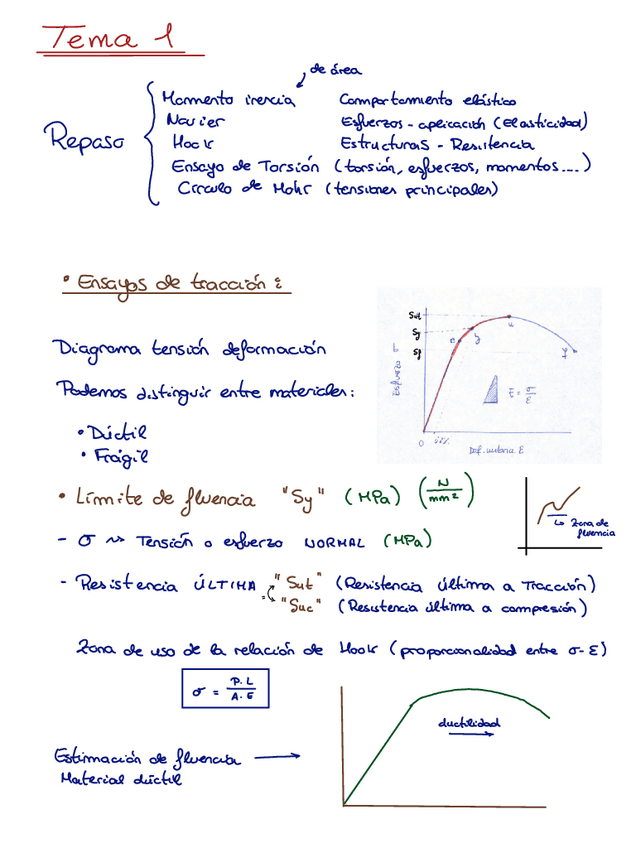 Tema 1
de área
Momento inercia Comportamiento elástico
Navier Esfuerzos - aplicación (Elasticidad)
Repaso Hook Estructuras - Resistencia
Ensayo de Torsión (torsión, esfuerzos, momentos....)
Círculo de Mohr (tensiones principales)
• Ensayos de tracción:
Diagrama tensión deformación
Podemos distinguir entre materiales:
• Dúctil
• Frágil
Sut
Sy
Sp
Esfuerzo σ
e
y
u
f
E = σ/ε
0
Def. unitaria ε
• Límite de fluencia "Sy" (MPa) (N/mm²)
Zona de fluencia
- σ ~> Tensión o esfuerzo NORMAL (MPa)
- Resistencia ÚLTIMA "Sut" (Resistencia última a Tracción)
"Suc" (Resistencia última a compresión)
Zona de uso de la relación de Hook (proporcionalidad entre σ-ε)
σ = P.L / A.E
ductilidad
Estimación de fluencia
Material dúctil